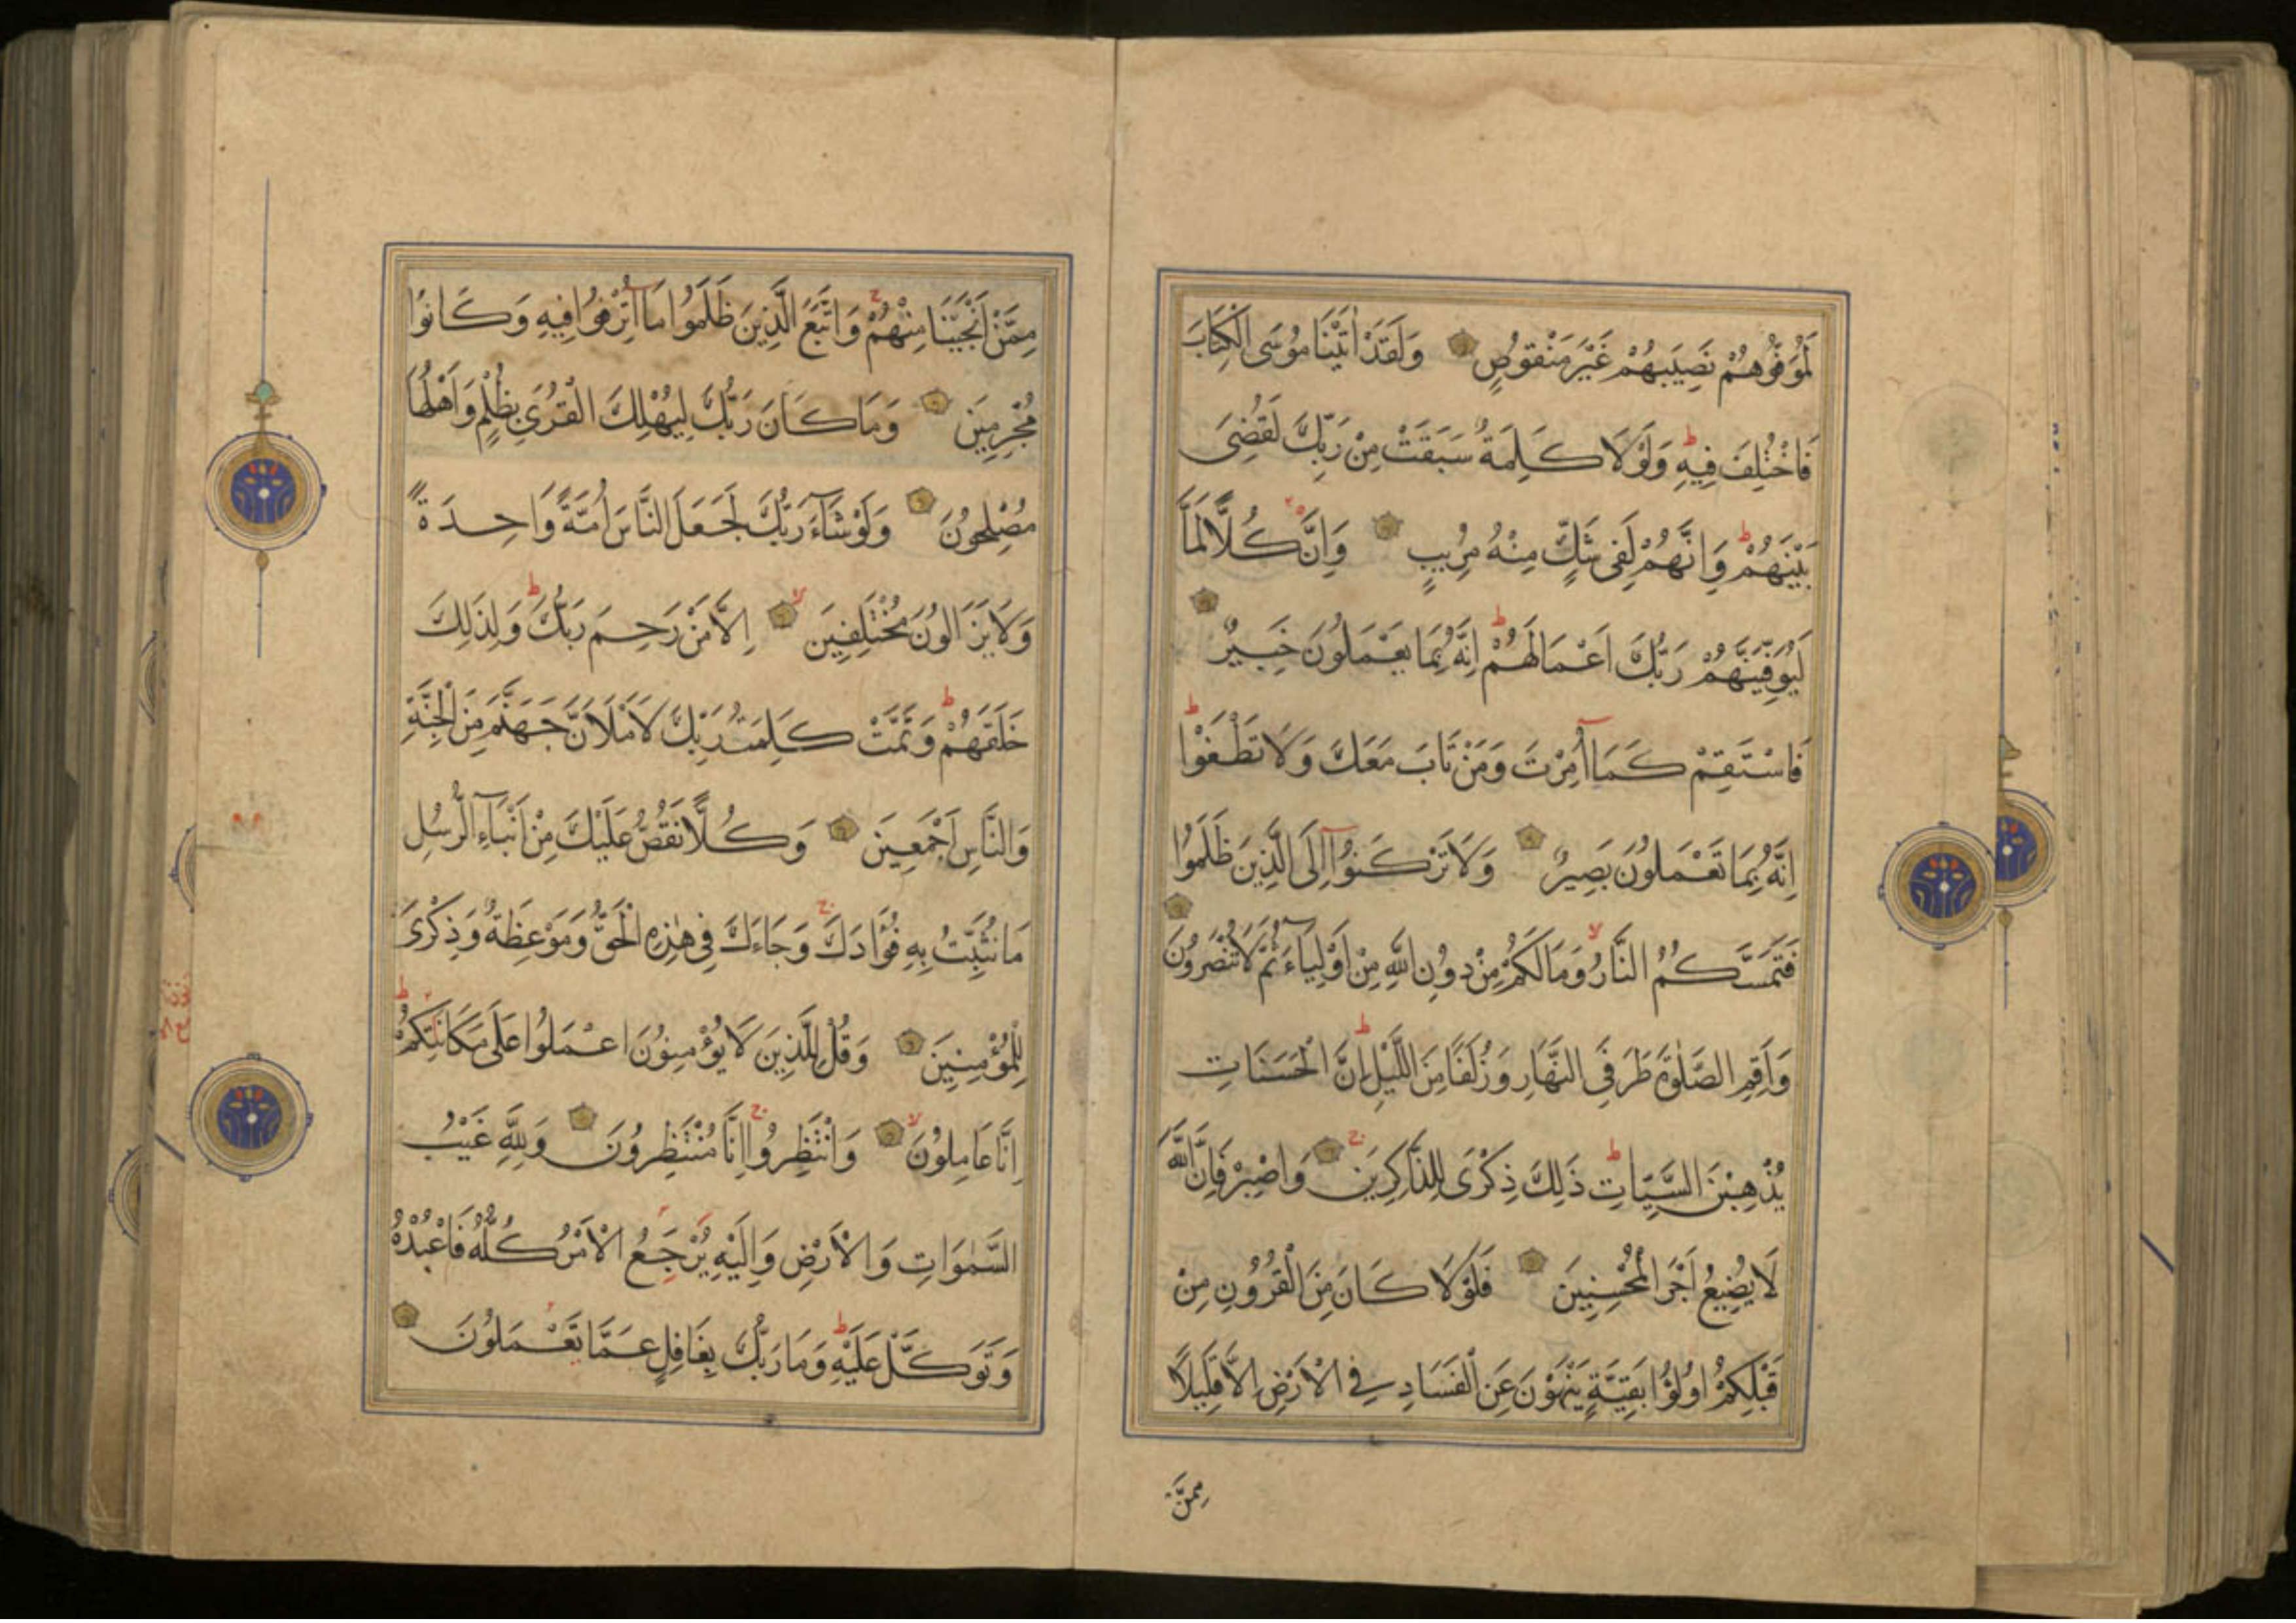 لَمُوَفُّوهُمْ نَصِيبَهُمْ غَيْرَ مَنْقُوصٍ وَلَقَدْ اٰتَيْنَا مُوسَى الْكِتَابَ
فَاخْتُلِفَ فِيهِ وَلَوْلَا كَلِمَةٌ سَبَقَتْ مِنْ رَبِّكَ لَقُضِىَ
بَيْنَهُمْ وَاِنَّهُمْ لَفِى شَكٍّ مِنْهُ مُرِيبٍ وَاِنَّ كُلًّا لَمَّا
لَيُوَفِّيَنَّهُمْ رَبُّكَ اَعْمَالَهُمْ اِنَّهُ بِمَا يَعْمَلُونَ خَبِيرٌ
فَاسْتَقِمْ كَمَا اُمِرْتَ وَمَنْ تَابَ مَعَكَ وَلَا تَطْغَوْا
اِنَّهُ بِمَا تَعْمَلُونَ بَصِيرٌ وَلَا تَرْكَنُوا اِلَى الَّذِينَ ظَلَمُوا
فَتَمَسَّكُمُ النَّارُ وَمَا لَكُمْ مِنْ دُونِ اللّٰهِ مِنْ اَوْلِيَاءَ ثُمَّ لَا تُنْصَرُونَ
وَاَقِمِ الصَّلٰوةَ طَرَفَىِ النَّهَارِ وَزُلَفًا مِنَ اللَّيْلِ اِنَّ الْحَسَنَاتِ
يُذْهِبْنَ السَّيِّاٰتِ ذَلِكَ ذِكْرَى لِلذَّاكِرِينَ وَاصْبِرْ فَاِنَّ اللّٰهَ
لَا يُضِيعُ اَجْرَ الْمُحْسِنِينَ فَلَوْلَا كَانَ مِنَ الْقُرُونِ مِنْ
قَبْلِكُمْ اُولُوا بَقِيَّةٍ يَنْهَوْنَ عَنِ الْفَسَادِ فِى الْاَرْضِ اِلَّا قَلِيلًا
مِمَّنْ
مِمَّنْ اَنْجَيْنَا مِنْهُمْ وَاتَّبَعَ الَّذِينَ ظَلَمُوا مَا اُتْرِفُوا فِيهِ وَكَانُوا
مُجْرِمِينَ وَمَا كَانَ رَبُّكَ لِيُهْلِكَ الْقُرَى بِظُلْمٍ وَاَهْلُهَا
مُصْلِحُونَ وَلَوْ شَاءَ رَبُّكَ لَجَعَلَ النَّاسَ اُمَّةً وَاحِدَةً
وَلَا يَزَالُونَ مُخْتَلِفِينَ اِلَّا مَنْ رَحِمَ رَبُّكَ وَلِذَلِكَ
خَلَقَهُمْ وَتَمَّتْ كَلِمَتُ رَبِّكَ لَاَمْلَاَنَّ جَهَنَّمَ مِنَ الْجِنَّةِ
وَالنَّاسِ اَجْمَعِينَ وَكُلًّا نَقُصُّ عَلَيْكَ مِنْ اَنْبَاءِ الرُّسُلِ
مَا نُثَبِّتُ بِهِ فُؤَادَكَ وَجَاءَكَ فِى هٰذِهِ الْحَقُّ وَمَوْعِظَةٌ وَذِكْرَى
لِلْمُؤْمِنِينَ وَقُلْ لِلَّذِينَ لَا يُؤْمِنُونَ اعْمَلُوا عَلَى مَكَانَتِكُمْ
اِنَّا عَامِلُونَ وَانْتَظِرُوا اِنَّا مُنْتَظِرُونَ وَلِلّٰهِ غَيْبُ
السَّمٰوَاتِ وَالْاَرْضِ وَاِلَيْهِ يُرْجَعُ الْاَمْرُ كُلُّهُ فَاعْبُدْهُ
وَتَوَكَّلْ عَلَيْهِ وَمَا رَبُّكَ بِغَافِلٍ عَمَّا تَعْمَلُونَ